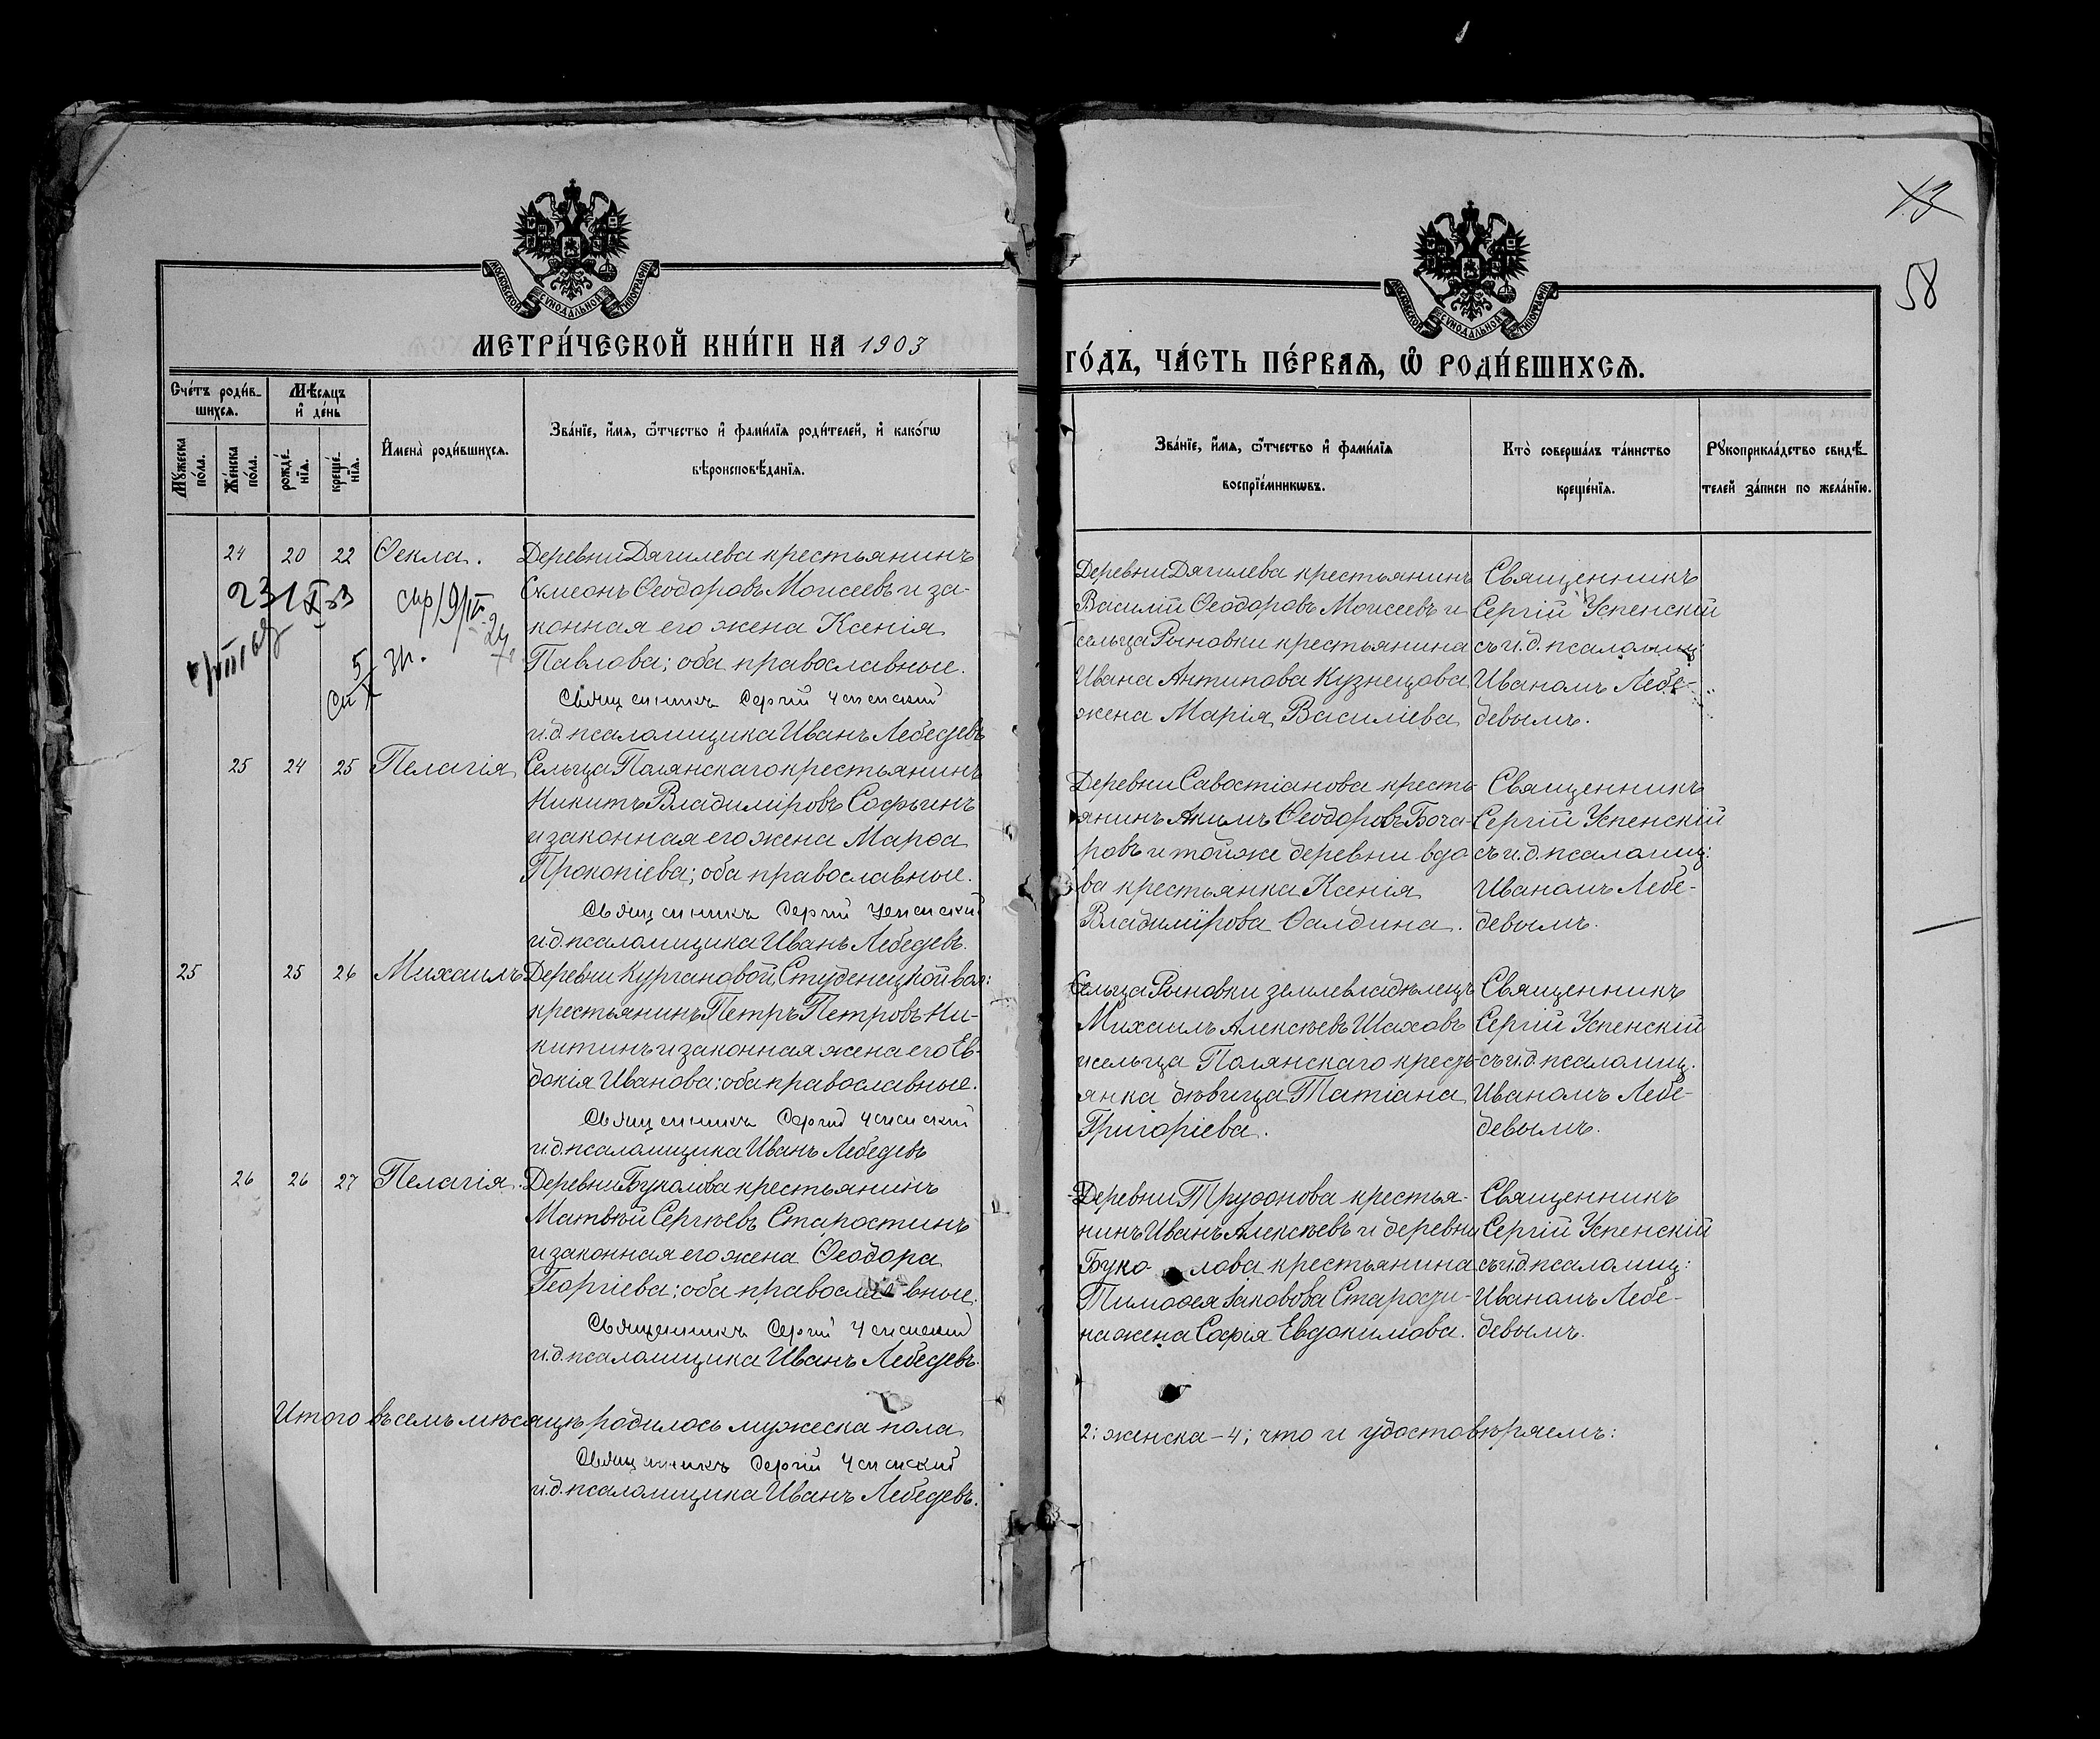 13
58
МОСКОВСКОЙ СѴНОДАЛЬНОЙ ТИПОГРАФІИ
МОСКОВСКОЙ СѴНОДАЛЬНОЙ ТИПОГРАФІИ
МЕТРИ́ЧЕСКОЙ КНИ́ГИ НА 1903
ГО́ДЪ, ЧА́СТЬ ПЕ́РВАѦ, Ѡ҆ РОДИ́ВШИХСѦ.
Сче́тъ роди́в-
шихсѧ.
Мѣсѧцъ
и҆ де́нь
Мꙋ́жеска
по́ла.
Же́нска
по́ла.
рожде́-
нїѧ.
креще́-
нїѧ.
И҆мена̀ роди́вшихсѧ.
Зва́нїе, и҆́мѧ, ѻ҆́тчество и҆ фами́лїѧ роди́телей, и҆ како́гѡ
вѣроисповѣ́данїѧ.
Зва́нїе, и҆́мѧ, ѻ҆́тчество и҆ фами́лїѧ
воспрїе́мникѡвъ.
Кто̀ соверша́лъ та́инство
креще́нїѧ.
Рꙋкоприкла́дство свидѣ́-
телей за́писи по жела́нїю.
24 20 22 Ѳекла. Деревни Дягилева крестьянинъ
Симеонъ Ѳеодоровъ Моисеевъ и за-
конная его жена Ксенія
Павлова; оба православные.
Священникъ Сергій Успенскій
и.д. псаломщика Иванъ Лебедевъ
Деревни Дягилева крестьянинъ
Василій Ѳеодоровъ Моисеевъ и
сельца Рыновки крестьянина
Ивана Антипова Кузнецова
жена Марія Василіева
Священникъ
Сергій Успенскій
съ и.д. псаломщ:
Иваномъ Лебе-
девымъ.
25 24 25 Пелагія Сельца Полянскаго крестьянинъ
Никитъ Владиміровъ Софьинъ
и законная его жена Марѳа
Прокопіева; оба православные.
Священникъ Сергій Успенскій
и.д. псаломщика Иванъ Лебедевъ.
Деревни Савостіанова кресть-
янинъ Акимъ Ѳеодоровъ Боча-
ровъ и той же деревни вдо-
ва крестьянка Ксенія
Владимірова Ѳалдина.
Священникъ
Сергій Успенскій
съ и.д. псаломщ:
Иваномъ Лебе-
девымъ.
25 25 26 Михаилъ Деревни Кургановой, Студенецкой вол:
крестьянинъ Петръ Петровъ Ни-
китинъ и законная жена его Ев-
докія Иванова; оба православные.
Священникъ Сергій Успенскій
и.д. псаломщика Иванъ Лебедевъ
Сельца Рыновки землевладѣлецъ
Михаилъ Алексѣевъ Шаховъ
и сельца Полянскаго кресть-
янка дѣвица Татіана
Григоріева.
Священникъ
Сергій Успенскій
съ и.д. псаломщ.
Иваномъ Лебе-
девымъ.
26 26 27 Пелагія. Деревни Буколова крестьянинъ
Матвѣй Сергѣевъ Старостинъ
и законная его жена Ѳеодора
Георгіева; оба православные.
Священникъ Сергій Успенскій
и.д. псаломщика Иванъ Лебедевъ.
Деревни Труфонова крестья-
нинъ Иванъ Алексѣевъ и деревни
Буколова крестьянина
Тимоѳея Іаковова Старости-
на жена Софія Евдокимова.
Священникъ
Сергій Успенскій
съ и.д. псаломщ:
Иваномъ Лебе-
девымъ.
Итого въ семъ мѣсяцѣ родилось мужеска пола
2; женска - 4; что и удостовѣряемъ:
Священникъ Сергій Успенскій
и.д. псаломщика Иванъ Лебедевъ.